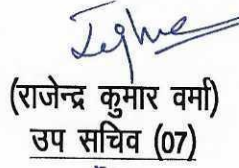 (राजेन्द्र कुमार वर्मा)
उप सचिव (07)